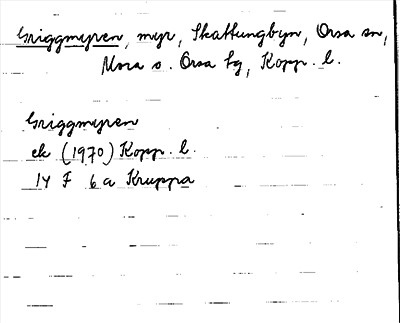 Griggmyren, myr, Skattungbyn, Orsa sn,
Mora o. Orsa tg, Kopp. l.
Griggmyren
ek (1970) Kopp. l.
14 F 6 a Kruppa